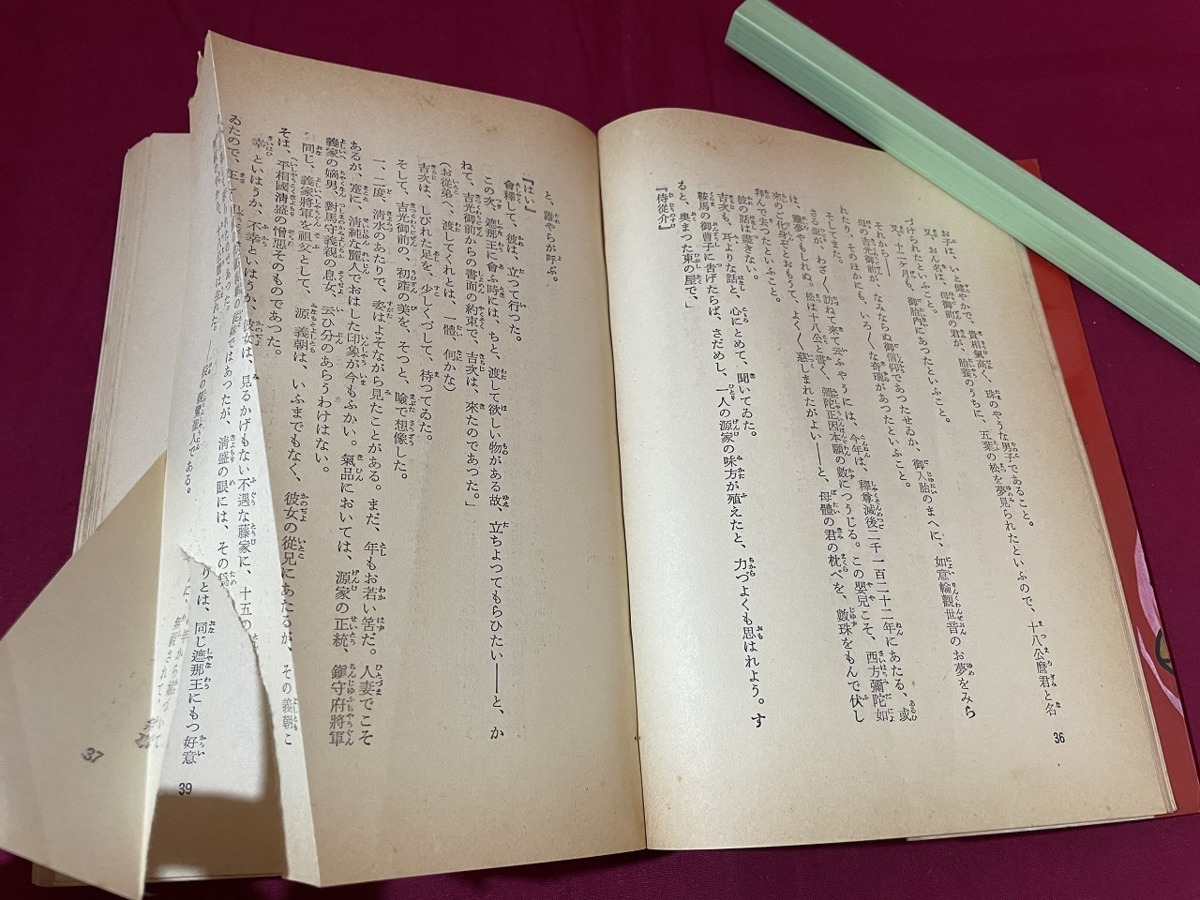 お子は、いと健やかで、貴相氣高く、珠のやうな男子であること。
又、おん名は、母御前の君が、胎養のうちに、五葉の松を夢見られたといふので、十八公麿君と名
づけられたといふこと。
又、十二ケ月も、御胎内にあつたといふこと。
それから――
母の吉光御前が、なみならぬ御信仰であつたせゐか、御入胎のまへに、如意輪觀世音のお夢をみら
れたり、そのほかにも、いろ〱な奇瑞があつたといふこと。
そしてまた。
さる氣が、わざ〱訪ねて來て云ふやうには、今年は、釋尊滅後二千一百二十二年にあたる、或
は、靈夢やもしれぬ。松は十八公と書く、彌陀正因本願の數につうじる。この嬰兒こそ、西方彌陀如
來のご化身とおもうて、よく〱、慈しまれたがよい――と、母體の君の枕べを、數珠をもんで伏し
拜んで去つたといふこと。
彼の話は盡きない。
吉次も、耳よりな話と、心にとめて、聞いてゐた。
鞍馬の御曹子に告げたらば、さだめし、一人の源家の味方が殖えたと、力づよくも思はれよう。す
ると、奧まつた東の屋で、」
『侍從介』
36
と、誰やらが呼ぶ。
『はい』
會釋して、彼は、立つて行つた。
この次、遮那王に會ふ時には、ちと、渡して欲しい物がある故、立ちよつてもらひたい――と、か
ねて、吉光御前からの書面の約束で、吉次は、來たのであつた。」
(お從弟へ、渡してくれとは、一體、何かな)
吉次は、しびれた足を、少しくづして、待つてゐた。
そして、吉光御前の、初産の美を、そつと、瞼で想像した。
一、二度、淸水のあたりで、姿はよそながら見たことがある。まだ、年もお若い筈だ。人妻でこそ
あるが、寔に、淸純な麗人でおはした印象が今もふかい。氣品においては、源家の正統、鎭守府將軍
義家の嫡男、對馬守義親の息女、云ひ分のあらうわけはない。
同じ、義家將軍を祖父として、源義朝は、いふまでもなく、彼女の從兄にあたるが、その義朝こ
そは、平相國淸盛の憎惡そのものであつた。
幸といはうか、不幸といはうか、彼女は、見るかげもない不遇な藤家に、十五の
ゐたので、
ではあつたが、淸盛の眼には、その
人である。
りとは、同じ遮那王にもつ好意
39
37